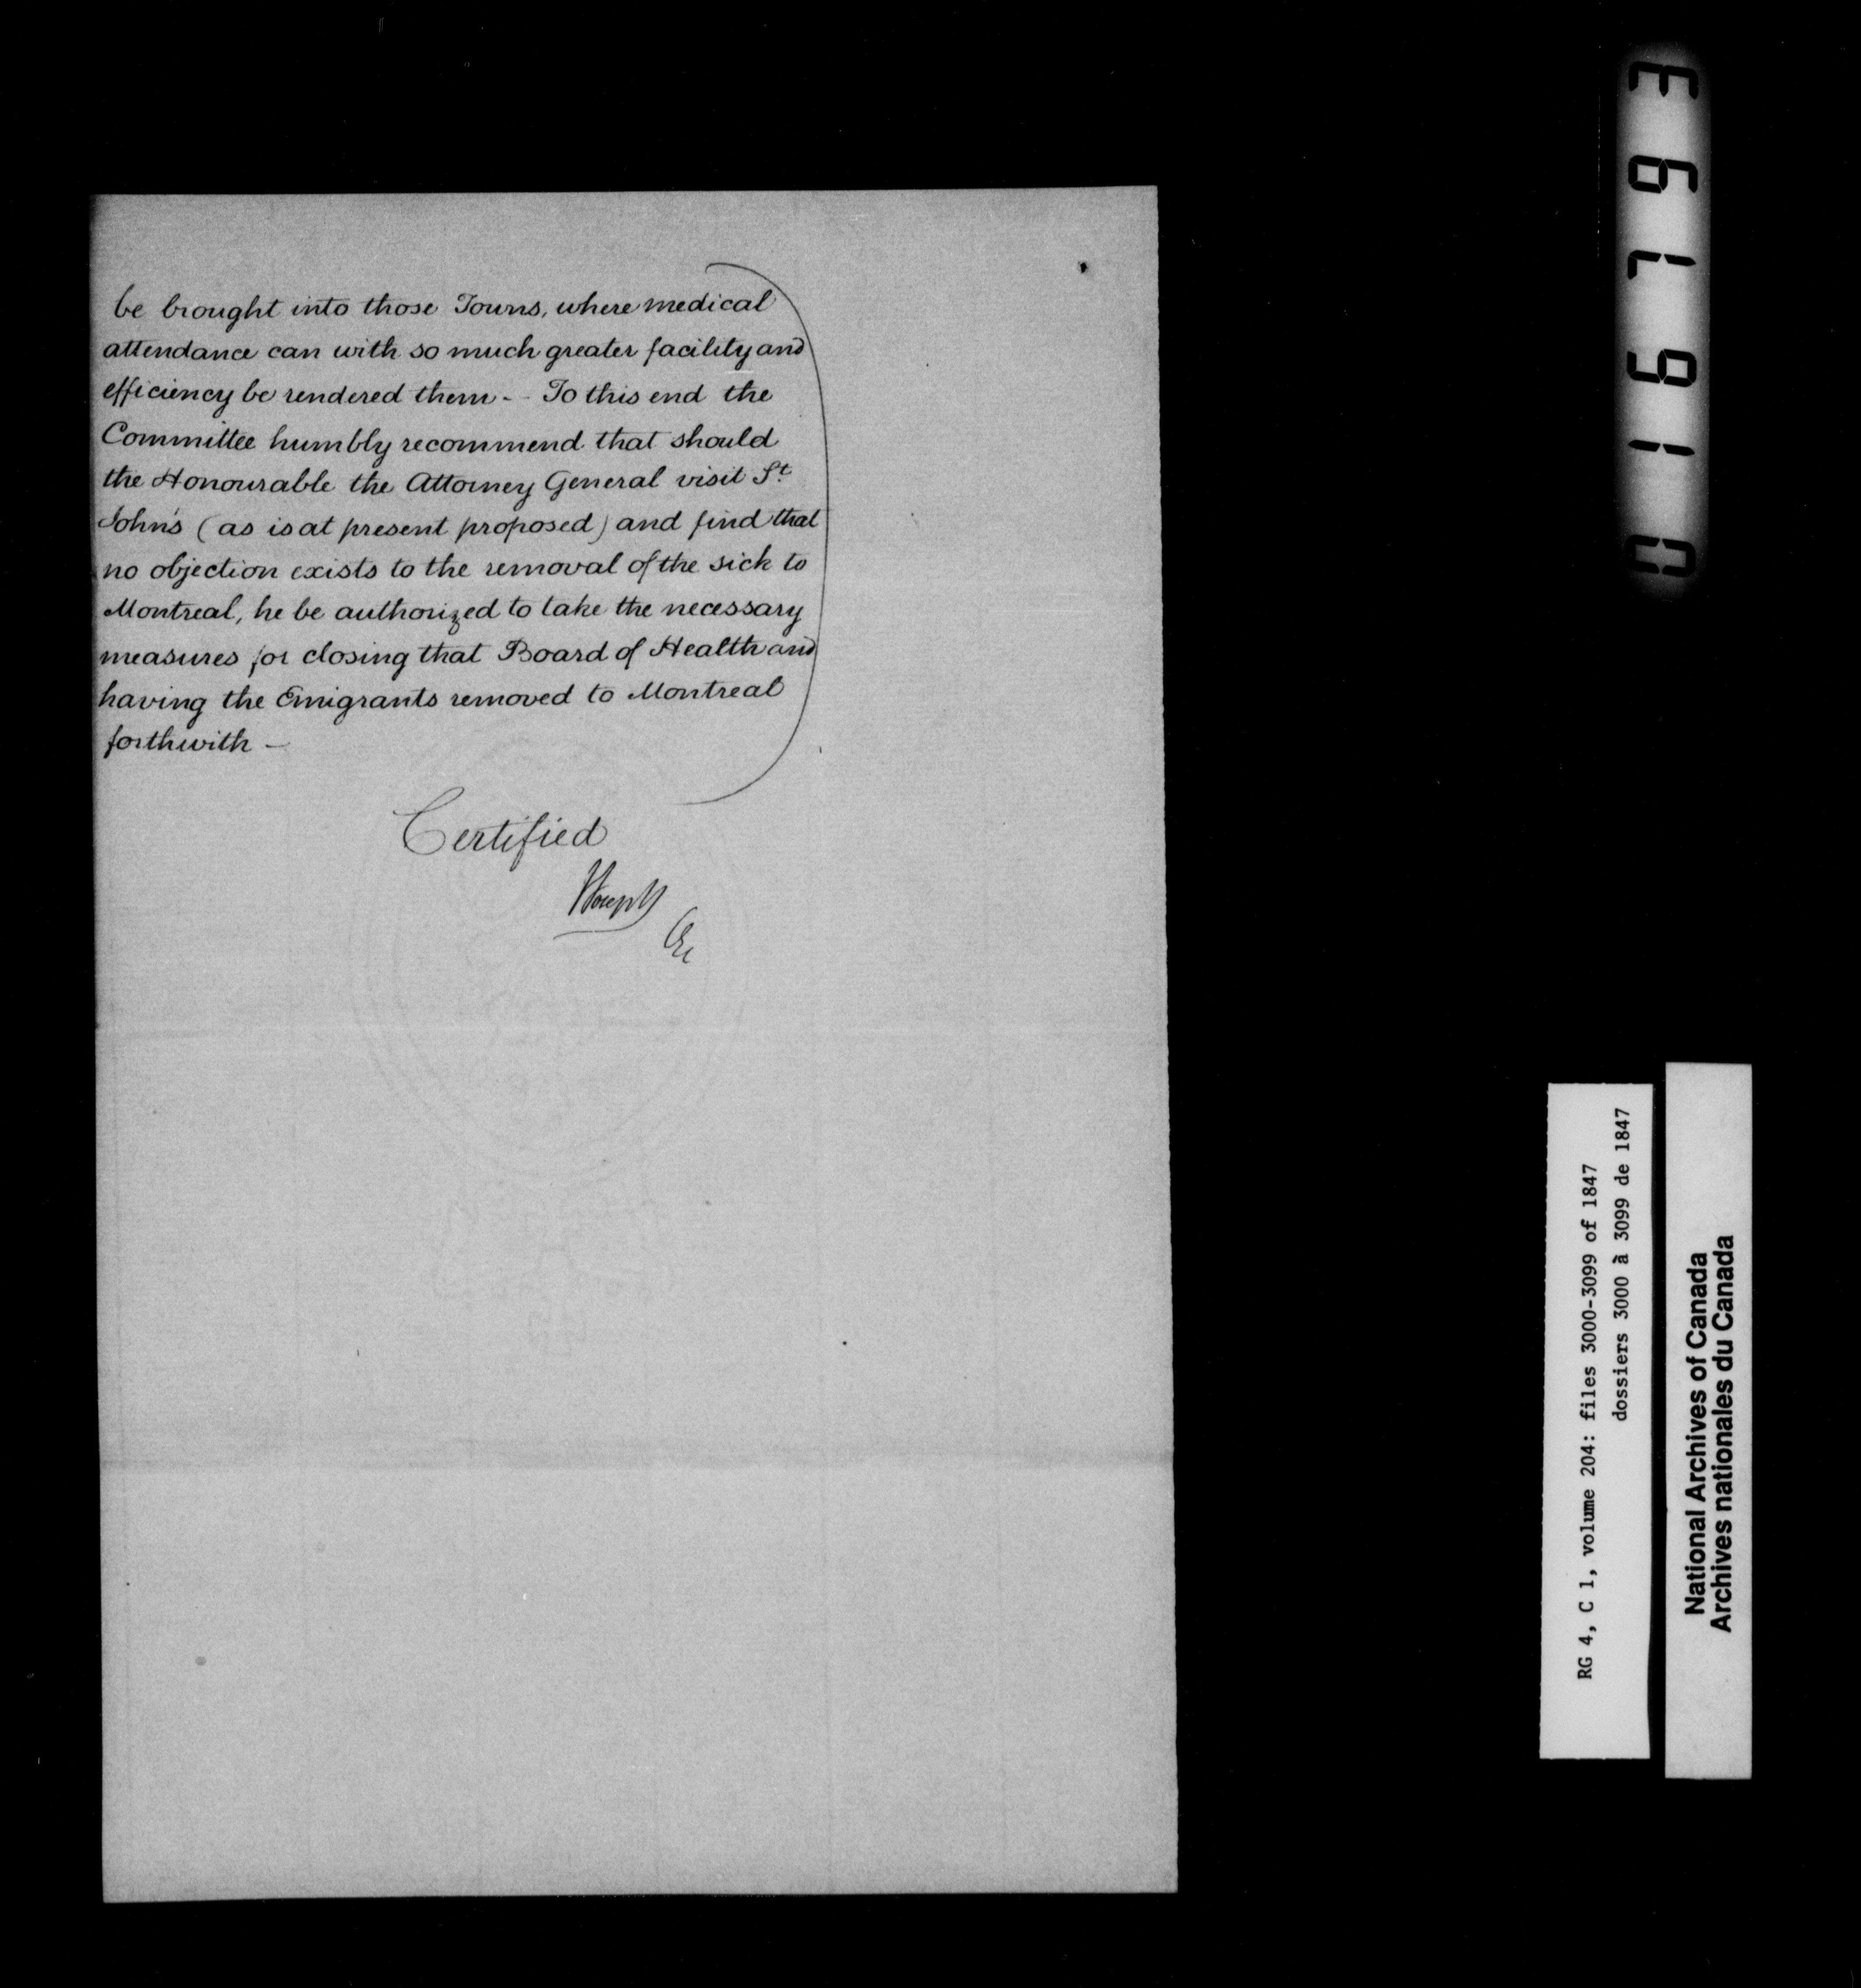 be brought into those Towns, where medical
attendance can with so much greater facility and
efficiency be rendered them - - To this end the
Committee humbly recommend that should
the Honourable the Attorney General visit St.
John's (as is at present proposed) and find that
no objection exists to the removal of the sick to
Montreal, he be authorized to take the necessary
measures for closing that Board of Health and
having the Emigrants removed to Montreal
forthwith -
Certified
RG 4, C 1, volume 204: files 3000-3099 of 1847
dossiers 3000 à 3099 de 1847
National Archives of Canada
Archives nationales du Canada